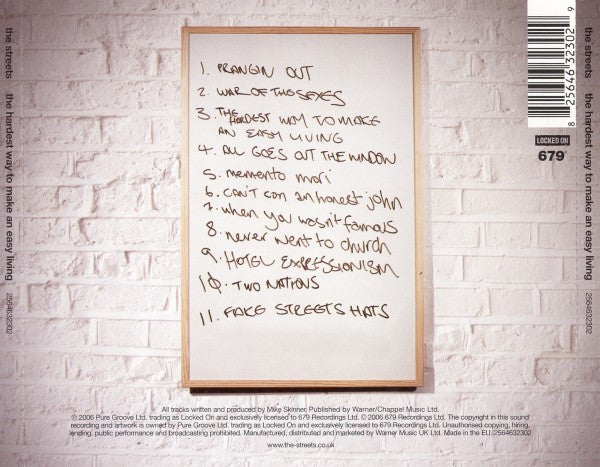 1. PRANGIN OUT
2. WAR OF THE SEXES
3. THE HARDEST WAY TO MAKE
AN EASY LIVING
4. ALL GOES OUT THE WINDOW
5. memento mori
6. can't con an honest john
7. when you wasn't famous
8. never went to church
9. HOTEL EXPRESSIONISM
10. TWO NATIONS
11. FAKE STREETS HATS
All tracks written and produced by Mike Skinner. Published by Warner/Chappel Music Ltd.
℗ 2006 Pure Groove Ltd. trading as Locked On and exclusively licensed to 679 Recordings Ltd. © 2006 679 Recordings Ltd. The copyright in this sound
recording and artwork is owned by Pure Groove Ltd. trading as Locked On and exclusively licensed to 679 Recordings Ltd. Unauthorised copying, hiring,
lending, public performance and broadcasting prohibited. Manufactured, distributed and marketed by Warner Music UK Ltd. Made in the EU. 2564632302
www.the-streets.co.uk
the streets the hardest way to make an easy living 2564632302
the streets the hardest way to make an easy living 2564632302
8 25646 32302 9
LOCKED ON
679